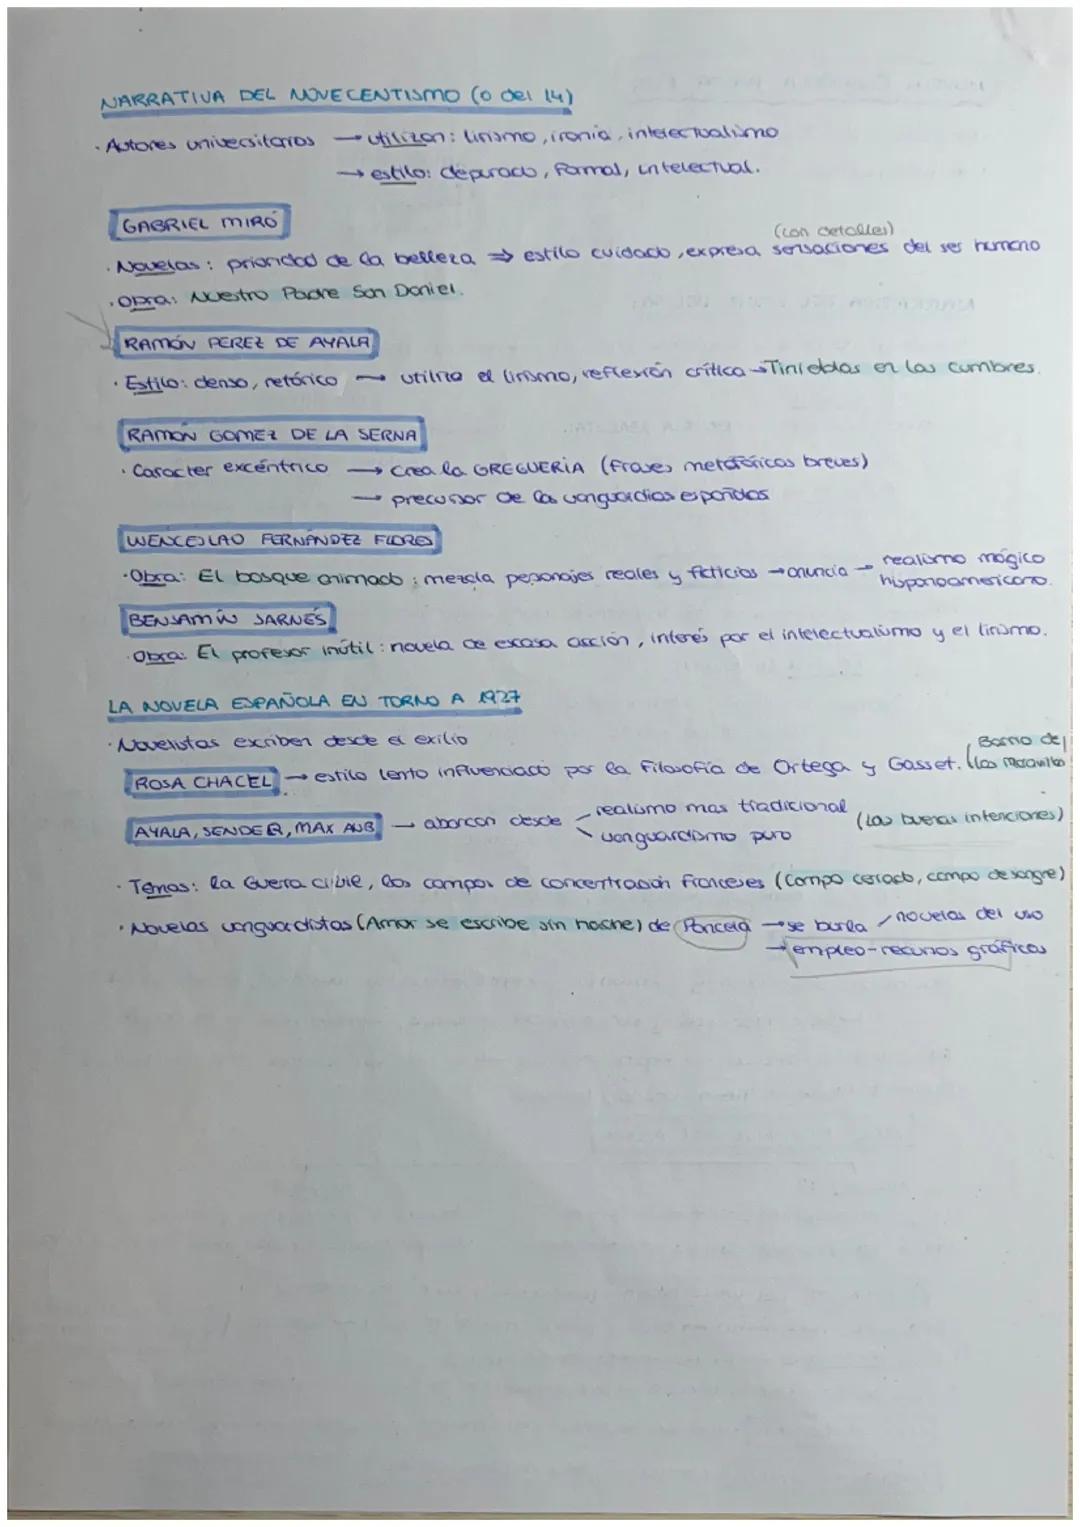 NARRATIVA DEL NOVECENTISMO (o del 14)
· Autores universitarios → utilizan: lirismo, ironía, intelectualismo
→ estilo: depurado, formal, intelectual.
GABRIEL MIRÓ
(con detalles)
· Novelas: prioridad de la belleza ⇒ estilo cuidado, expresa sensaciones del ser humano
· Obra: Nuestro Padre San Daniel.
RAMÓN PEREZ DE AYALA
· Estilo: denso, retórico → utiliza el lirismo, reflexión crítica → Tinieblas en las cumbres.
RAMÓN GOMEZ DE LA SERNA
· Caracter excéntrico → crea la GREGUERIA (frases metafóricas breves)
→ precursor de las vanguardias españolas
WENCESLAO FERNÁNDEZ FLORES
· Obra: El bosque animado: mezcla personajes reales y ficticios → anuncia → realismo mágico
hispanoamericano.
BENJAMÍN JARNÉS
· Obra: El profesor inútil: novela de escasa acción, interés por el intelectualismo y el lirismo.
LA NOVELA ESPAÑOLA EN TORNO A 1927
· Novelistas escriben desde el exilio
Barrio de
ROSA CHACEL → estilo lento influenciado por la filosofía de Ortega y Gasset. (las Maravillas
AYALA, SENDER, MAX AUB → abarcan desde realismo mas tradicional (Las buenas intenciones)
vanguardismo puro
· Temas: la Guerra civil, los campos de concentración franceses (Campo cerrado, campo de sangre)
· Novelas vanguardistas (Amor se escribe sin hache) de Poncela → se burla / novelas del uso
→ empleo-recursos gráficos